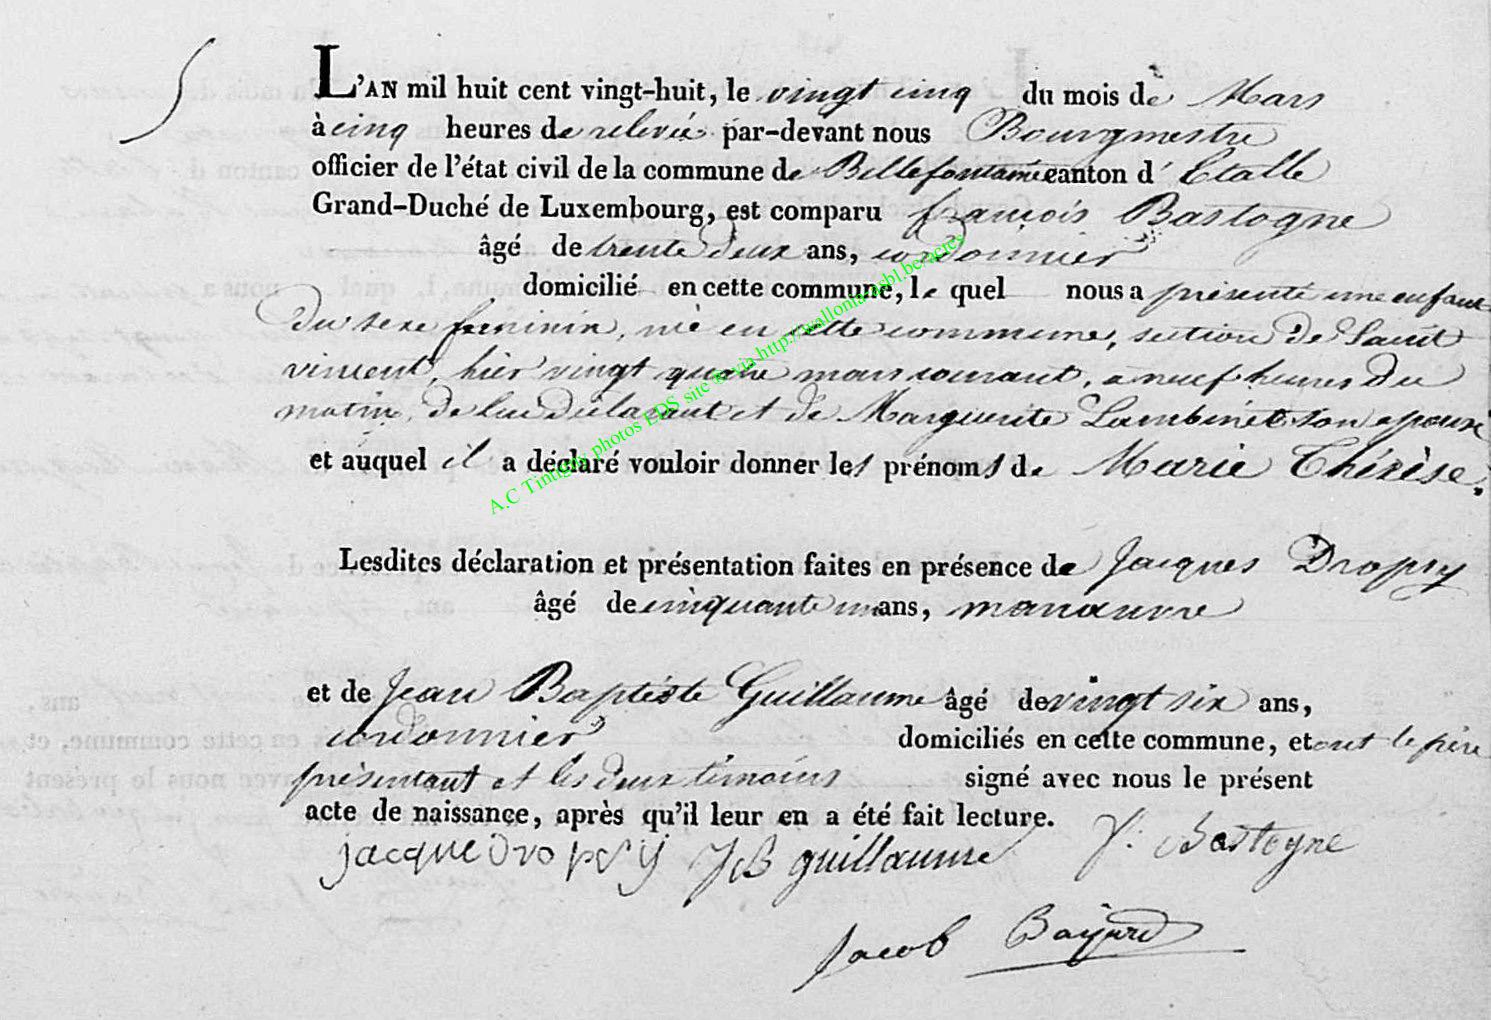 L'AN mil huit cent vingt-huit, le vingt cinq du mois de Mars
à cinq heures de relevée par-devant nous Bourgmestre
officier de l'état civil de la commune de Bellefontaine canton d' Etalle
Grand-Duché de Luxembourg, est comparu françois Bastogne
âgé de trente deux ans, cordonnier
domicilié en cette commune, le quel nous a présenté une enfant
du sexe feminin, née en cette commune, section de Saint
vincent, hier vingt quatre mars courant, a neuf heures du
matin, de lui déclarant et de Marguerite Lambinet son epouse
et auquel il a déclaré vouloir donner les prénoms de Marie Thérèse.
Lesdites déclaration et présentation faites en présence de Jacques Dropsy
âgé de cinquante un ans, manœuvre
et de Jean Baptiste Guillaume âgé de vingt six ans,
cordonnier domiciliés en cette commune, et ont le père
présentant et les deux témoins signé avec nous le présent
acte de naissance, après qu'il leur en a été fait lecture.
jacque dropsy JB guillaume f. Bastogne
Jacob Bayard
A.C Tintigny photos EDS site & via http://wallonia-asbl.be/actes